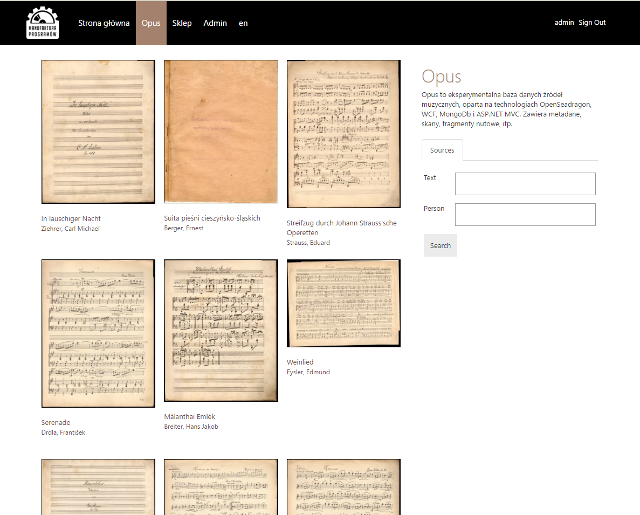 MANUFAKTURA
PROGRAMÓW
Strona główna
Opus
Sklep
Admin
en
admin Sign Out
In lauschiger Nacht
Ziehrer, Carl Michael
Suita pieśni cieszyńsko-śląskich
Berger, Ernest
Streifzug durch Johann Strauss'sche
Operetten
Strauss, Eduard
Serenade
Drdla, František
Malanthai Emlek
Breiter, Hans Jakob
Weinlied
Eysler, Edmund
Opus
Opus to eksperymentalna baza danych źródeł
muzycznych, oparta na technologiach OpenSeadragon,
WCF, MongoDb i ASP.NET MVC. Zawiera metadane,
skany, fragmenty nutowe, itp.
Sources
Text
Person
Search